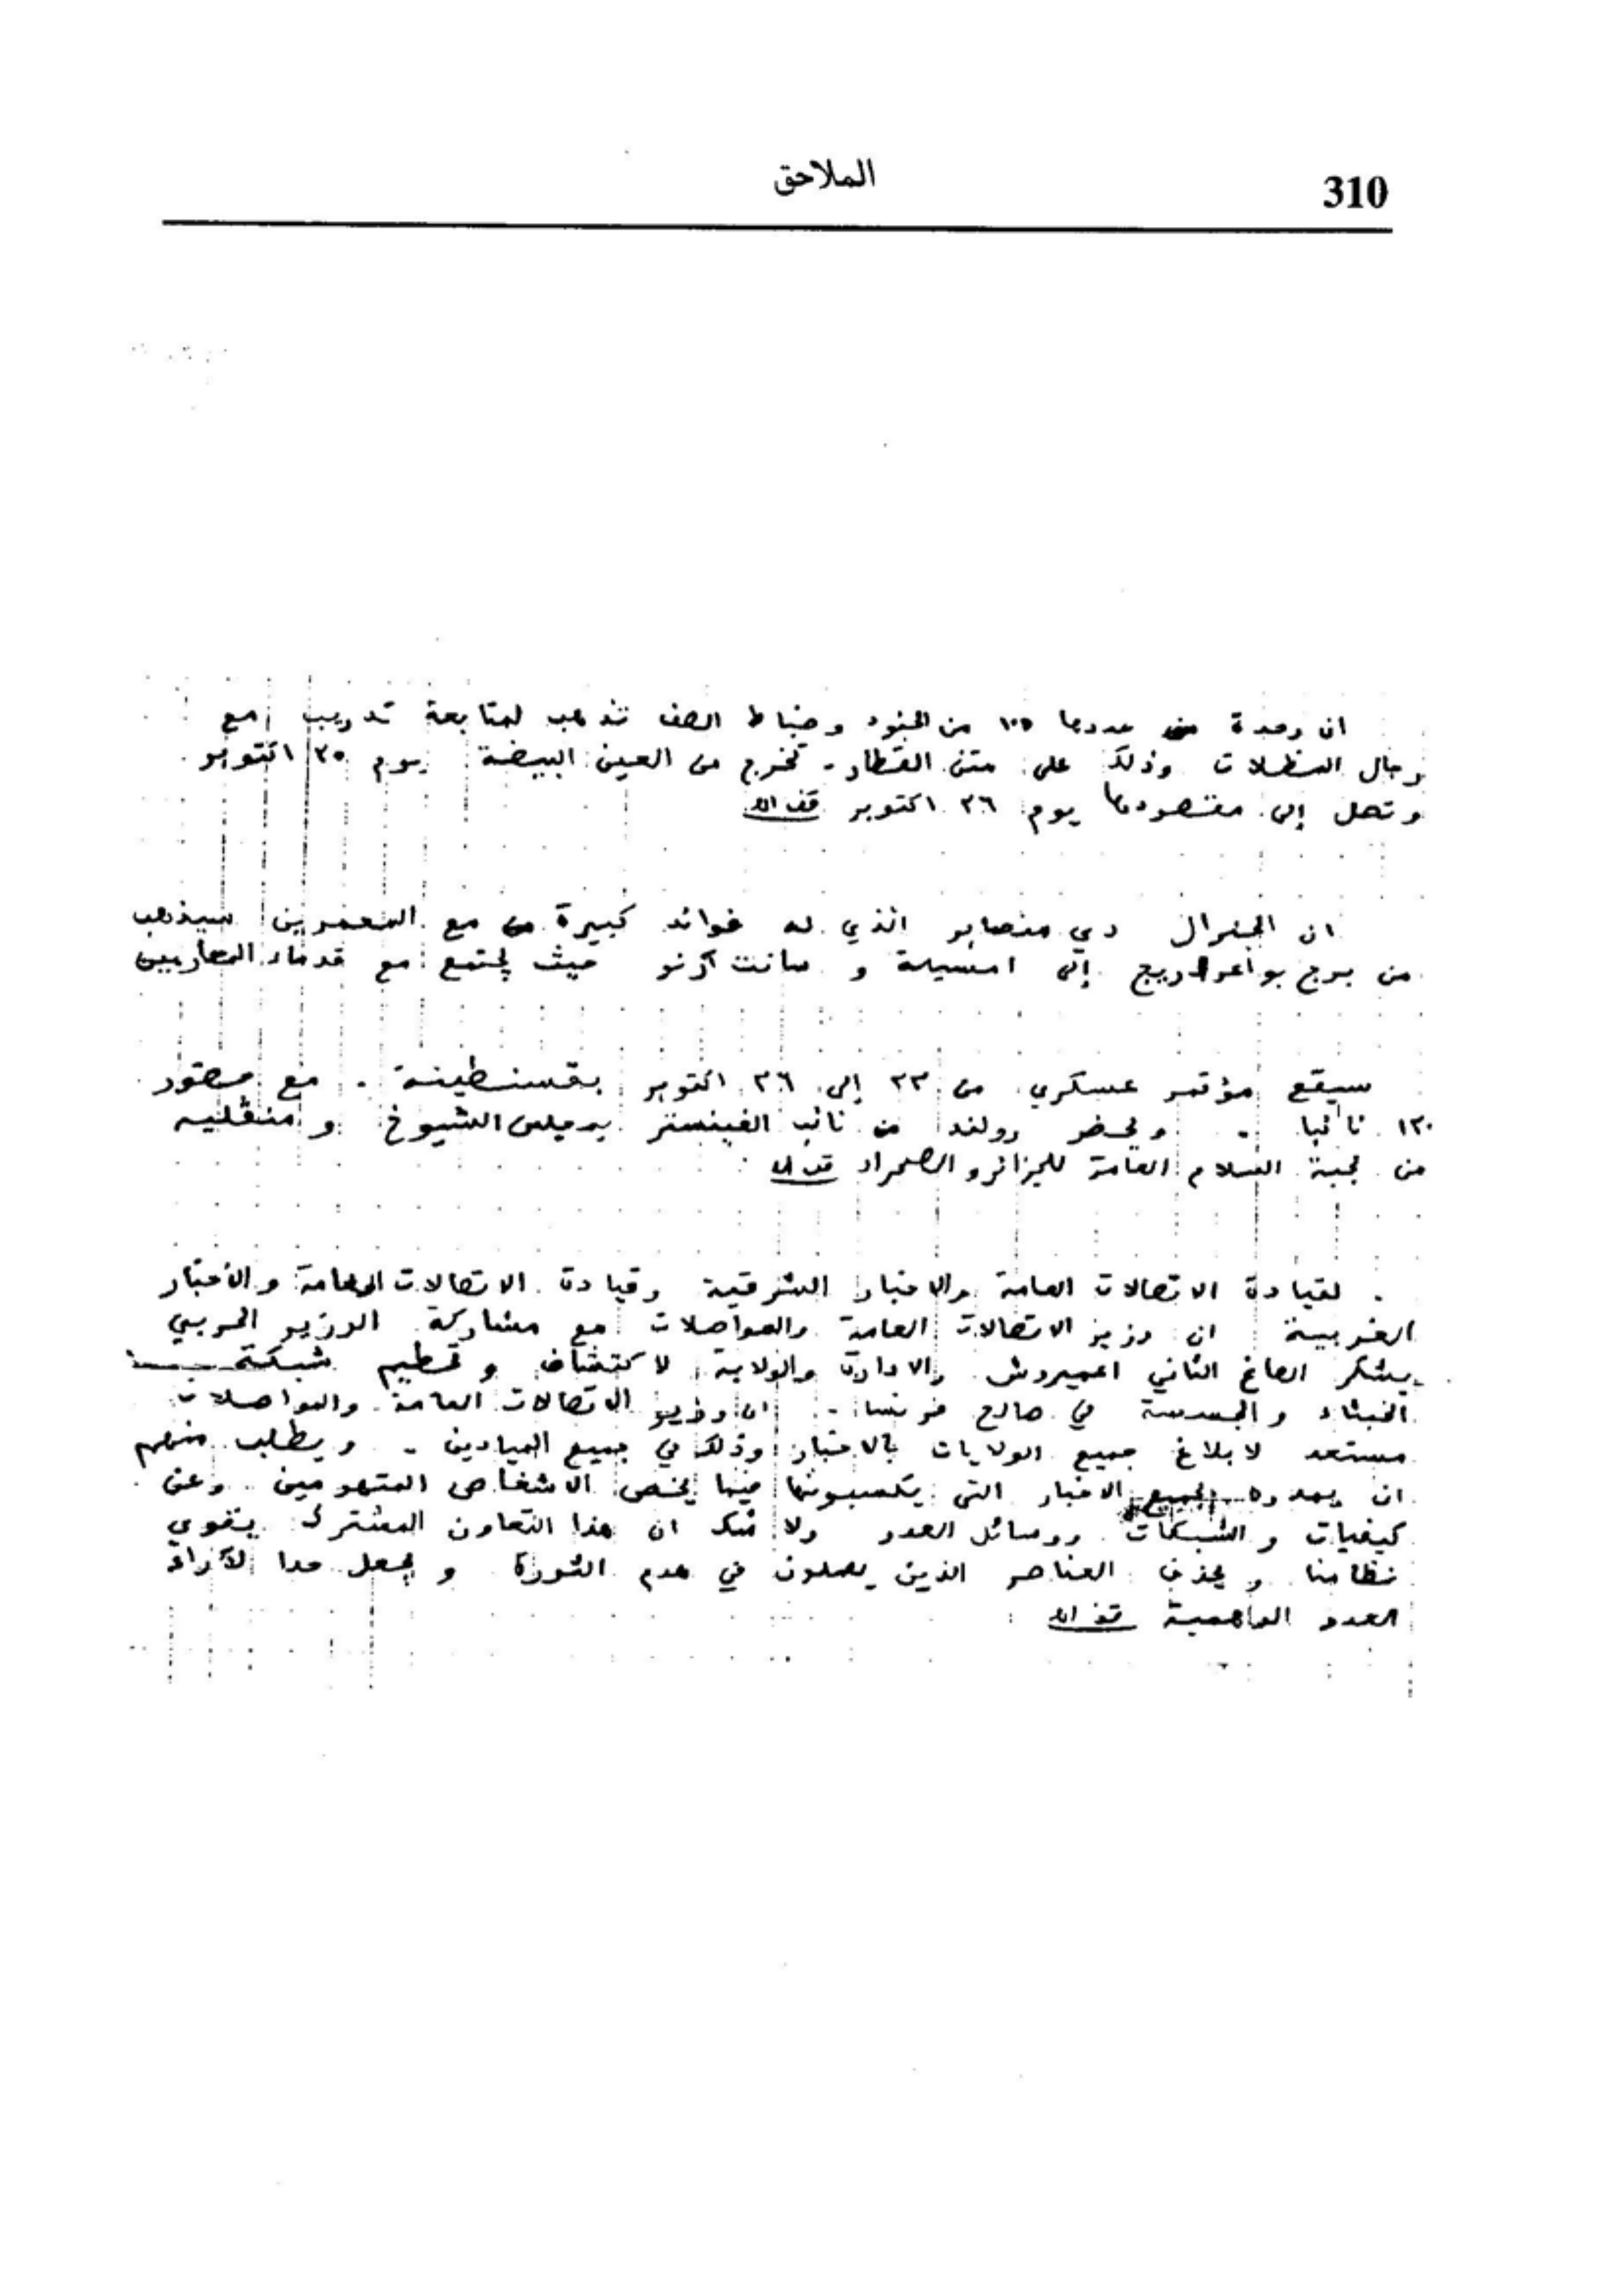 310
الملاحق
ان وحدة من عددها ١٠٥ من الجنود وضباط الصف تذهب لمتابعة تدريب مع
رجال المظلات وذلك على متن القطار - تخرج من العين البيضة يوم ٢٥ اكتوبر
وتصل إلى مقصودها يوم ٢٦ اكتوبر قف الله
ان الجنرال دي منصابر الذي له فوائد كبيرة من مع المعمرين سيذهب
من برج بو اعراريج إلى امسيلة و سانت ارنو حيث يجتمع مع قدماء المحاربين
سيقع مؤتمر عسكري من ٢٣ إلى ٢٦ اكتوبر بقسنطينة . مع حضور
١٢٠ نائبا . ويحضر رولند من نائب الفينستر بمجلس الشيوخ و
من لجنة السلام العامة للجزائر و الصحراء
. لقيادة الاتصالات العامة والاخبار الشرقية وقيادة الاتصالات العامة والأخبار
الغربية ان وزير الاتصالات العامة والمواصلات مع مشاركة الوزير الحربي
يشكر الصاغ الثاني اعميروش والادارة والولاية لاكتشاف وتحطيم شبكة
الخبثاء والجسسة في صالح فرنسا . ان وزير الاتصالات العامة والمواصلات
مستعد لابلاغ جميع الولايات بالاخبار وذلك في جميع الميادين . ويطلب منهم
ان يمدوه بجميع الاخبار التي يكسبونها فيما يخص الاشخاص المتهومين وعن
كيفيات و الشبكات ووسائل العدو ولا شك ان هذا التعاون المشترك يقوي
نظامنا و يحذف العناصر الذين يعملون في هدم الثورة و يجعل حدا لآراء
العدو الواهمية